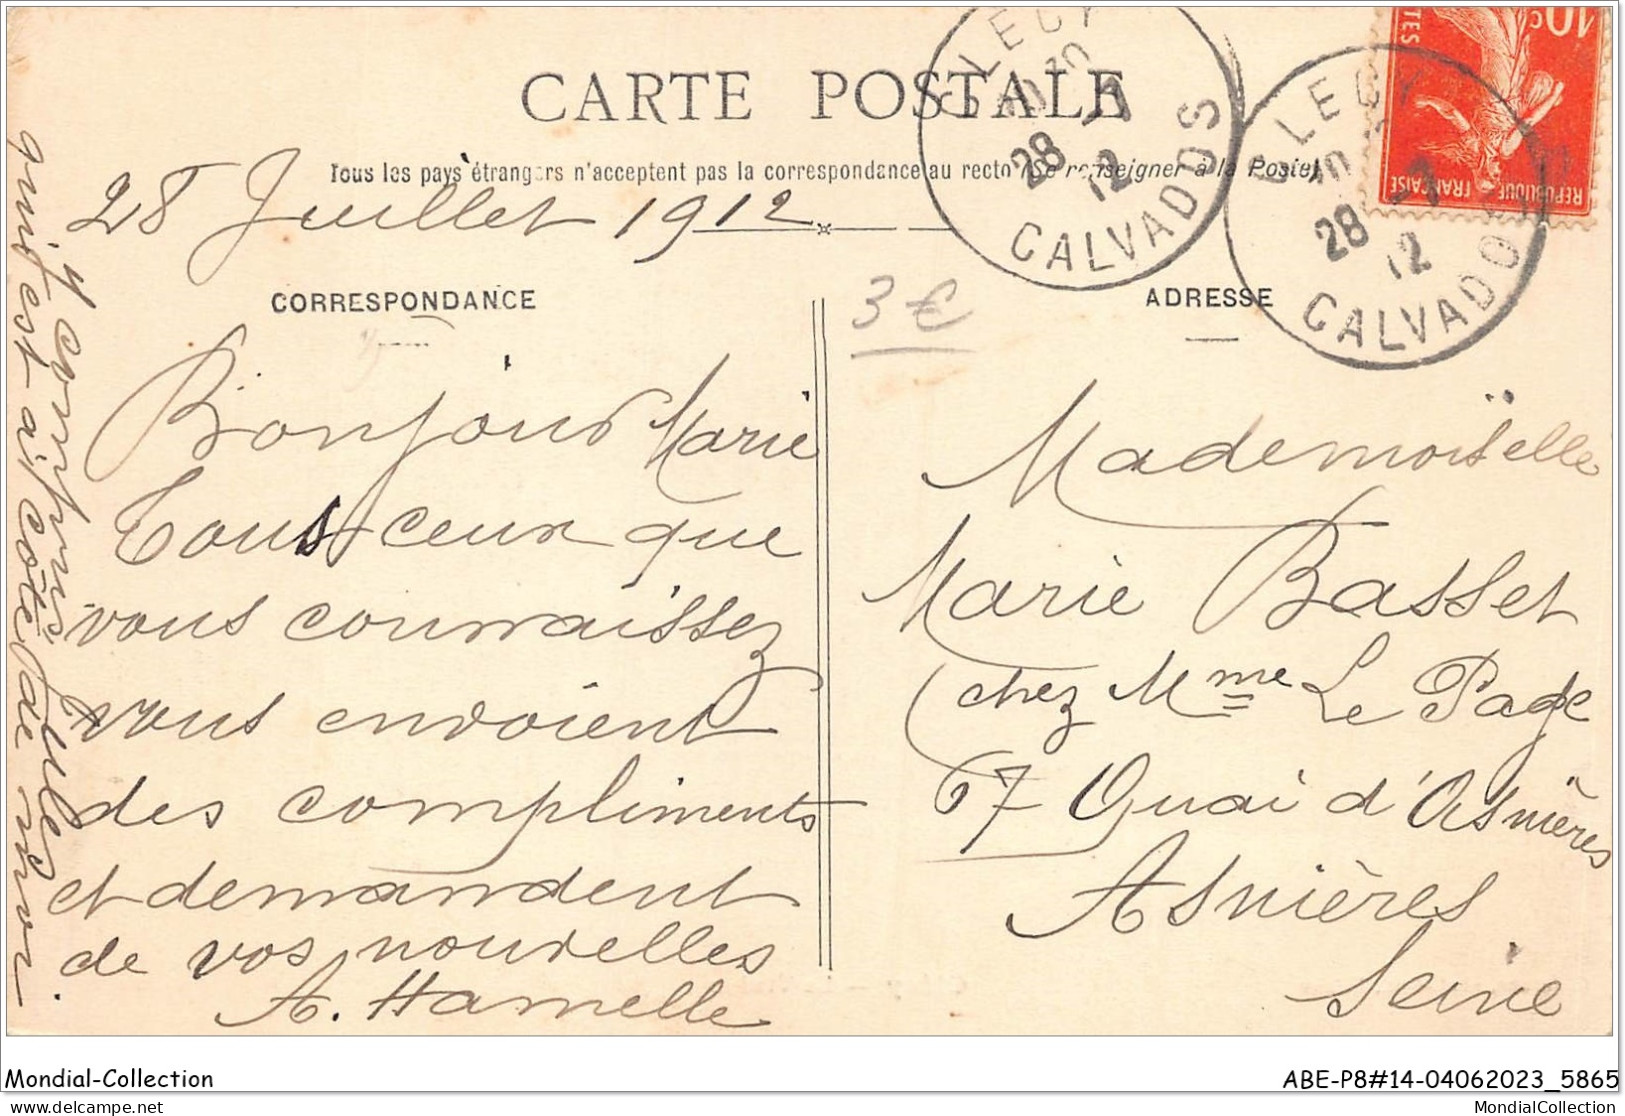 CARTE POSTALE
Tous les pays étrangers n'acceptent pas la correspondance au recto (Se renseigner à la Poste)
28 Juillet 1912
CORRESPONDANCE
Bonjour Marie
Tous ceux que
vous connaissez
vous envoient
des compliments
et demandent
de vos nouvelles
A. Hamelle
y compris
qui est à côté de moi.
3 €
ADRESSE
Mademoiselle
Marie Basset
chez Mme Le Page
67 Quai d'Asnières
Asnières
Seine
CLECY
10 30
28 -7
12
CALVADOS
CLECY
10
28 -7
12
CALVADOS
10c
REPUBLIQUE FRANÇAISE
POSTES
Mondial-Collection
ABE-P8#14-04062023_5865
MondialCollection